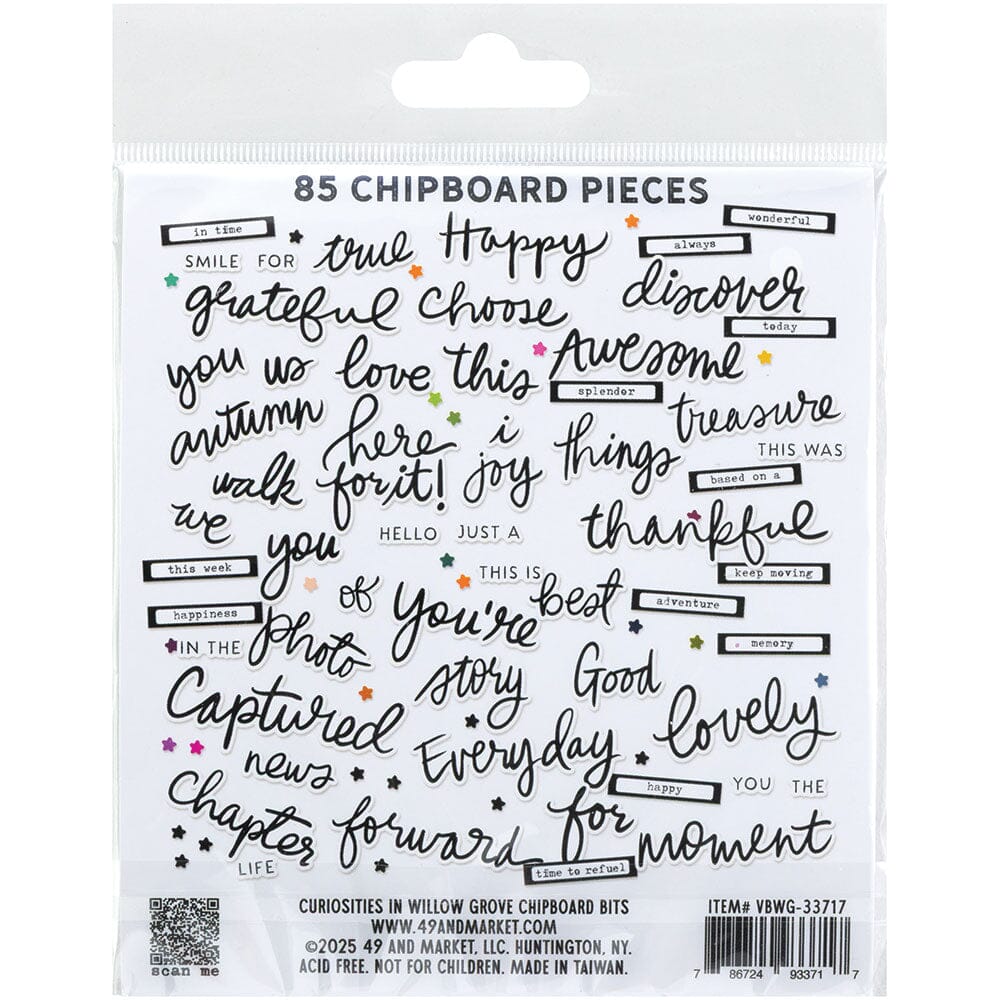 85 CHIPBOARD PIECES
in time
wonderful
SMILE FOR
true
Happy
always
grateful
choose
discover
today
you
us
love
this
Awesome
splendor
autumn
here
for it!
i
joy
things
treasure
THIS WAS
walk
based on a
we
you
HELLO
JUST A
thankful
this week
THIS IS
keep moving
happiness
of
you're
best
adventure
IN THE
photo
story
Good
memory
Captured
Everyday
lovely
news
happy
YOU
THE
Chapter
forward
for
moment
LIFE
time to refuel
scan me
CURIOSITIES IN WILLOW GROVE CHIPBOARD BITS
WWW.49ANDMARKET.COM
©2025 49 AND MARKET, LLC. HUNTINGTON, NY.
ACID FREE. NOT FOR CHILDREN. MADE IN TAIWAN.
ITEM# VBWG-33717
7 86724 93371 7